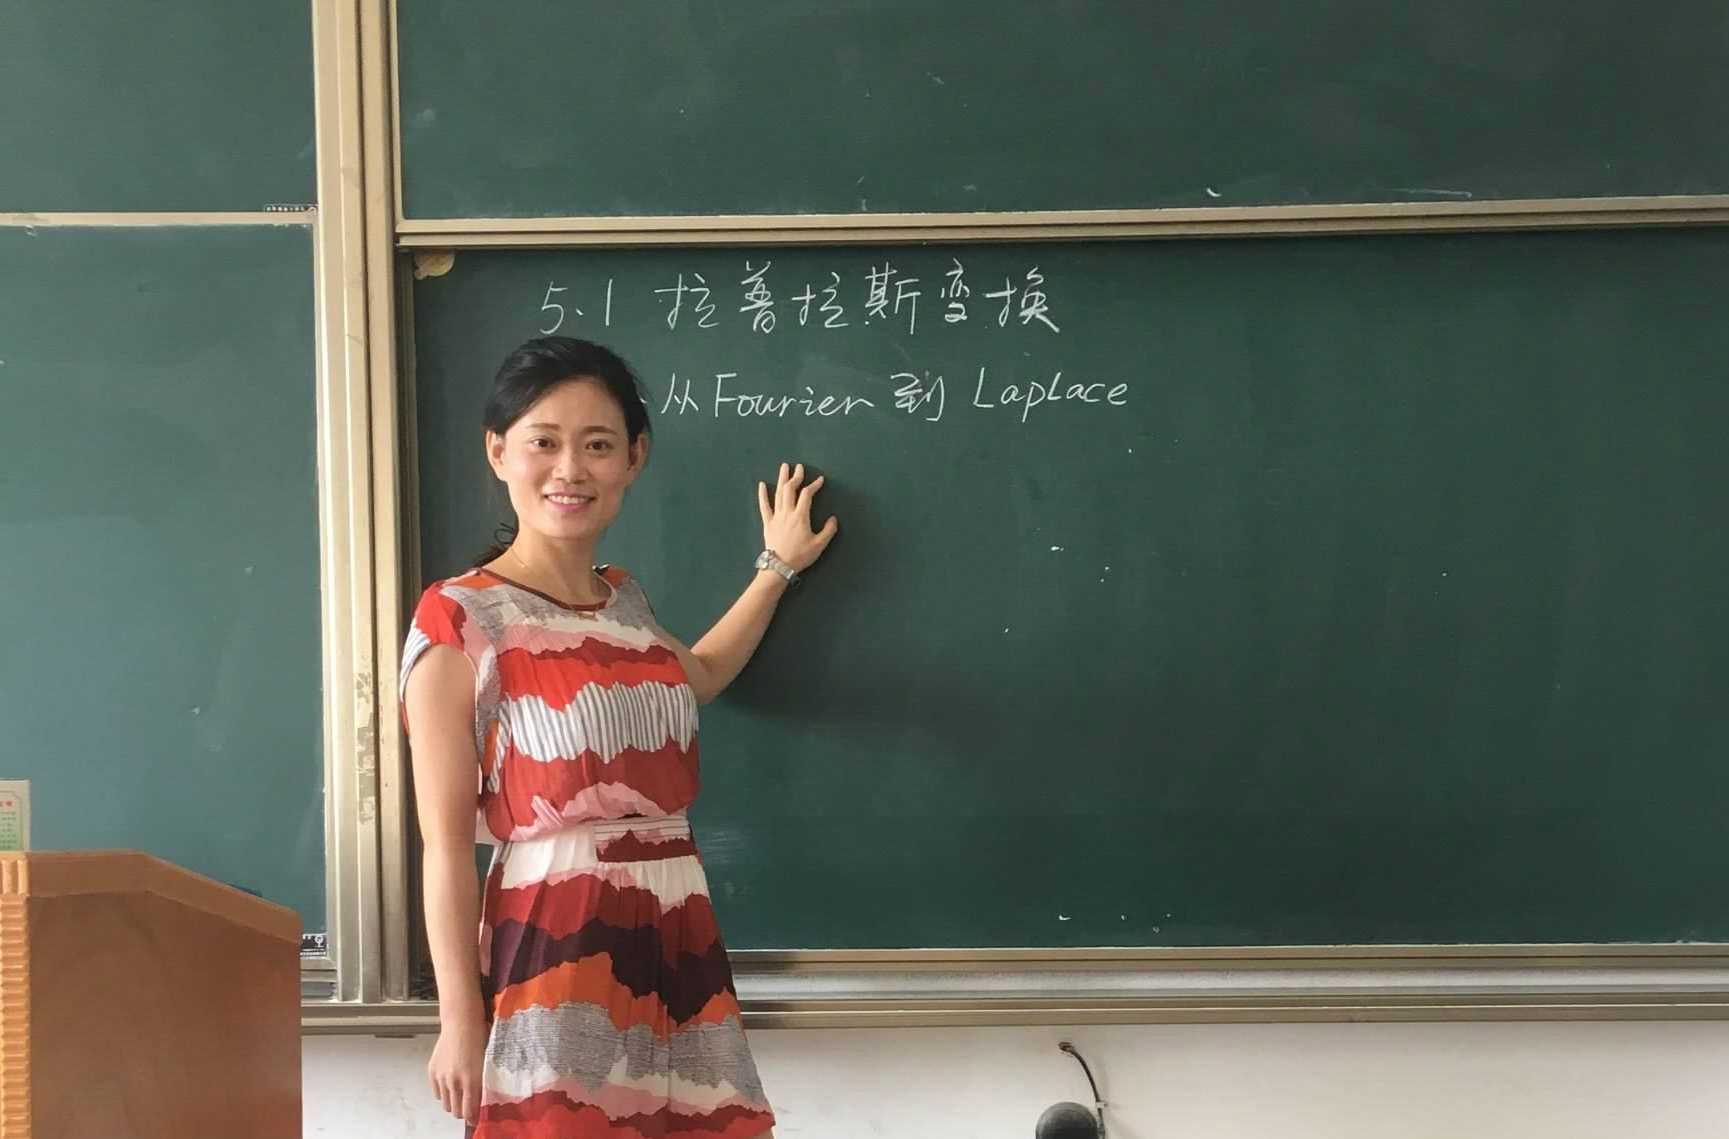 5.1 拉普拉斯变换
从Fourier到Laplace